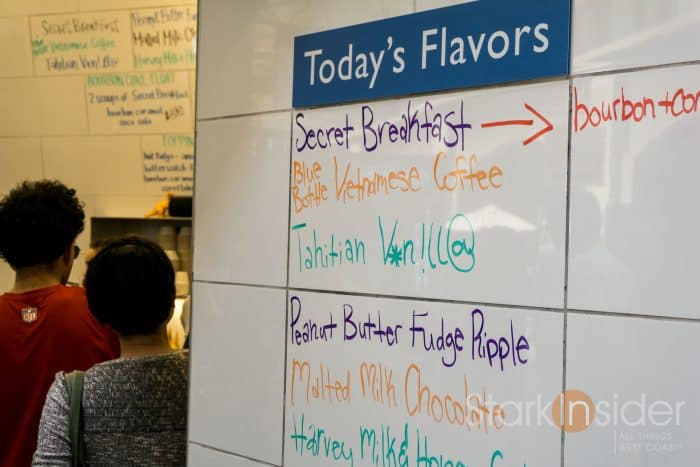 Secret Breakfast
Vietnamese Coffee
Tahitian
Peanut Butter Fudge
Malted Milk
Harvey Milk
BOURBON COKE FLOAT
2 scoops of Secret Breakfast
bourbon caramel
coca cola
TOPPING
hot fudge
butterscotch
bourbon caramel
NFL
Today's Flavors
Secret Breakfast → bourbon + cor
Blue
Bottle Vietnamese Coffee
Tahitian V*n!ll@
Peanut Butter Fudge Ripple
Malted Milk Chocolate
Harvey Milk & Honey
StarkInsider
ALL THINGS
WEST COAST